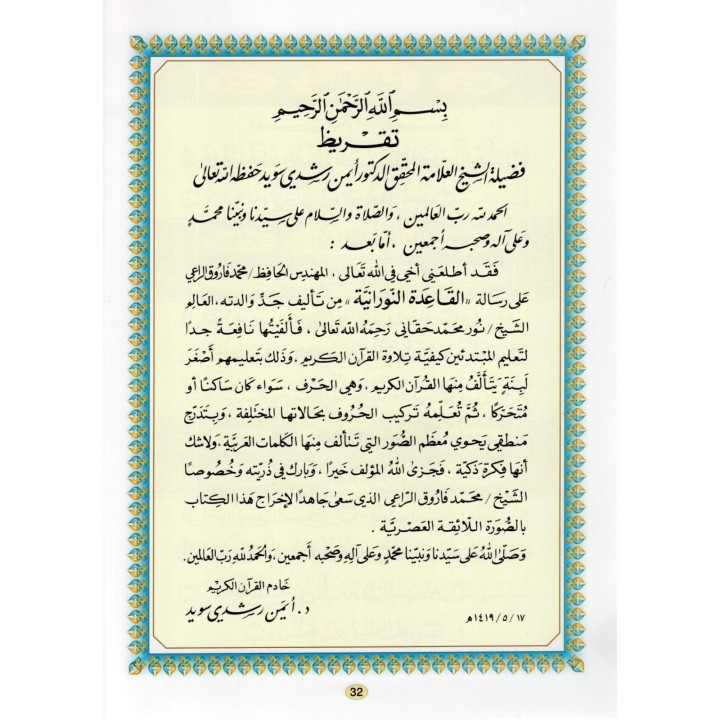 بِسْمِ اللَّهِ الرَّحْمَٰنِ الرَّحِيمِ
تقريظ
فضيلة الشيخ العلامة المحقق الدكتور أيمن رشدي سويد حفظه الله تعالى
الحمد لله رب العالمين ، والصلاة والسلام على سيدنا ونبينا محمد
وعلى آله وصحبه أجمعين ، أما بعد :
فَقَد أطلعَني أخي في الله تَعَالى ، المهندس الحَافِظ / محمد فَاروق الراعي
عَلى رسَالة «القَاعِدَة النُّورَانيَّة» مِن تَأليف جَدِّ وَالدته، العَالِم
الشَّيخ / نور محمد حَقاني رَحِمَهُ الله تعَالى ، فَألفَيْتُها نَافِعَةً جدًا
لتَعليم المُبْتدئين كيفيَّة تِلاوة القرآن الكريم ، وَذلك بتَعليمهم أصْغَرَ
لَبِنَةٍ يَتَألَّفُ مِنهَا القُرآن الكريم ، وَهيَ الحَرْف ، سَوَاء كَان سَاكنًا أو
مُتَحَرّكًا ، ثُمَّ تُعَلِّمهُ تَركيبَ الحُرُوف بحَالاتها المختَلِفة ، وَبتَدَرُّج
مَنطقي يَحوي مُعظَم الصُّوَر التي تَتألف مِنهَا الكَلمات العَرَبيَّة، وَلاشك
أنهَا فِكرة ذَكيَّة ، فَجَزى اللهُ المؤلف خَيرًا ، وَبَارك في ذُريّته وَخُصُوصًا
الشَّيخ / محَمد فَاروق الرَّاعي الذي سَعى جَاهدًا لإخراج هَذا الكِتَاب
بالصُّورَة اللّائقة العَصريَّة .
وَصَلّى اللهُ عَلى سَيّدنا وَنبيّنا محمّدٍ وَعلى آلِهِ وصَحْبه أجمعين، وَالحَمدُ للهِ رَبّ العَالمين.
خَادم القرآن الكريم
د. أيمن رشدي سويد
١٤١٩/٥/١٧هـ
32